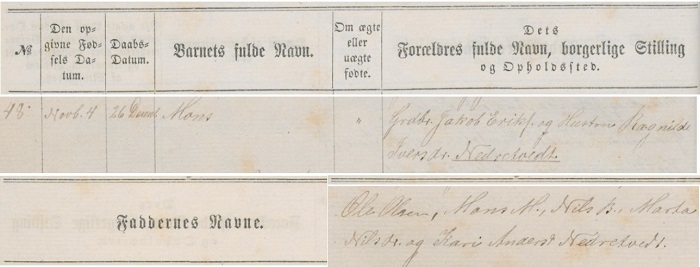 №
Den op-
givne Fød-
sels Da-
tum.
Daabs-
Datum.
Barnets fulde Navn.
Om ægte
eller
uægte
fødte.
Dets
Forældres fulde Navn, borgerlige Stilling
og Opholdssted.
48
Novb. 4
26 Decemb
Mons
"
Grdbr. Jakob Eriks. og Hustru Ragnilde
Iversdr. Nedretvedt.
Faddernes Navne.
Ole Olsen, Mons M., Nils B., Marta
Nilsdr. og Kari Andersd Nedretvedt.